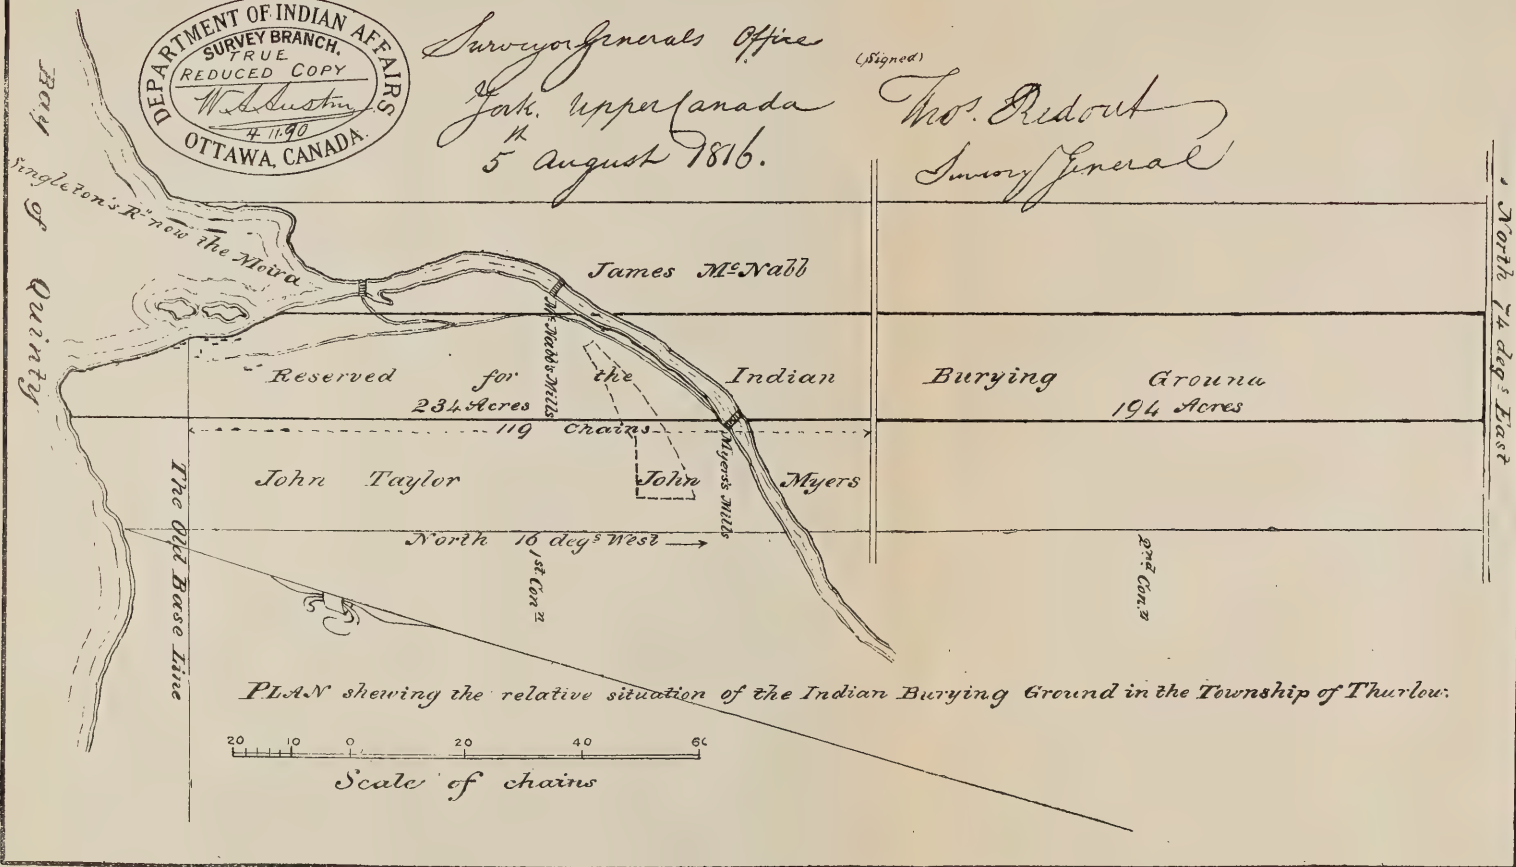 DEPARTMENT OF INDIAN AFFAIRS
SURVEY BRANCH.
TRUE
REDUCED COPY
W A Austin
4.11.90
OTTAWA, CANADA.
Surveyor Generals Office
York. Upper Canada
5th August 1816.
(Signed)
Thos. Ridout
Surveyor General
Bay of Quinty
Singleton's Rr now the Moira
James McNabb
North 74 degs East
McNabb's Mills
Reserved for the Indian Burying Ground
234 Acres
194 Acres
119 Chains
John Taylor
John Myers
Myers's Mills
The Old Base Line
North 16 degs West
1st Con.n
2nd Con.n
PLAN shewing the relative situation of the Indian Burying Ground in the Township of Thurlow.
20 10 0 20 40 60
Scale of chains